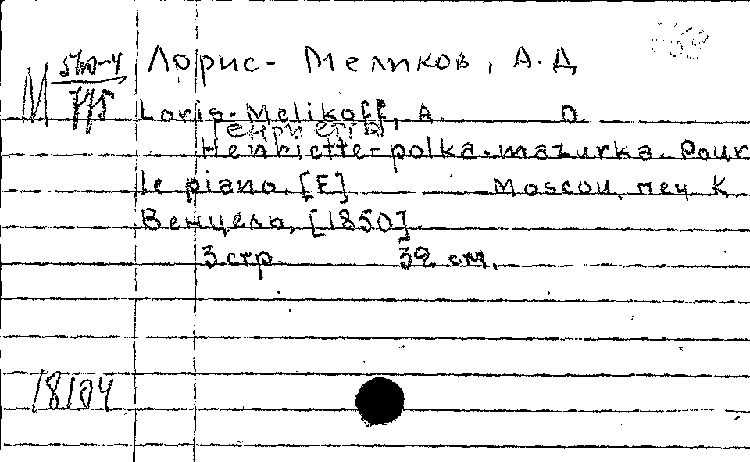 Лорис-Меликов, А.Д
M 540-4/775
Loris-Melikoff, A. D
[Генриетта]
Henriette-polka-mazurka. Pour
le piano. [E] Moscou, печ К
Венцеля, [1850]
3 стр. 32 см.
18104